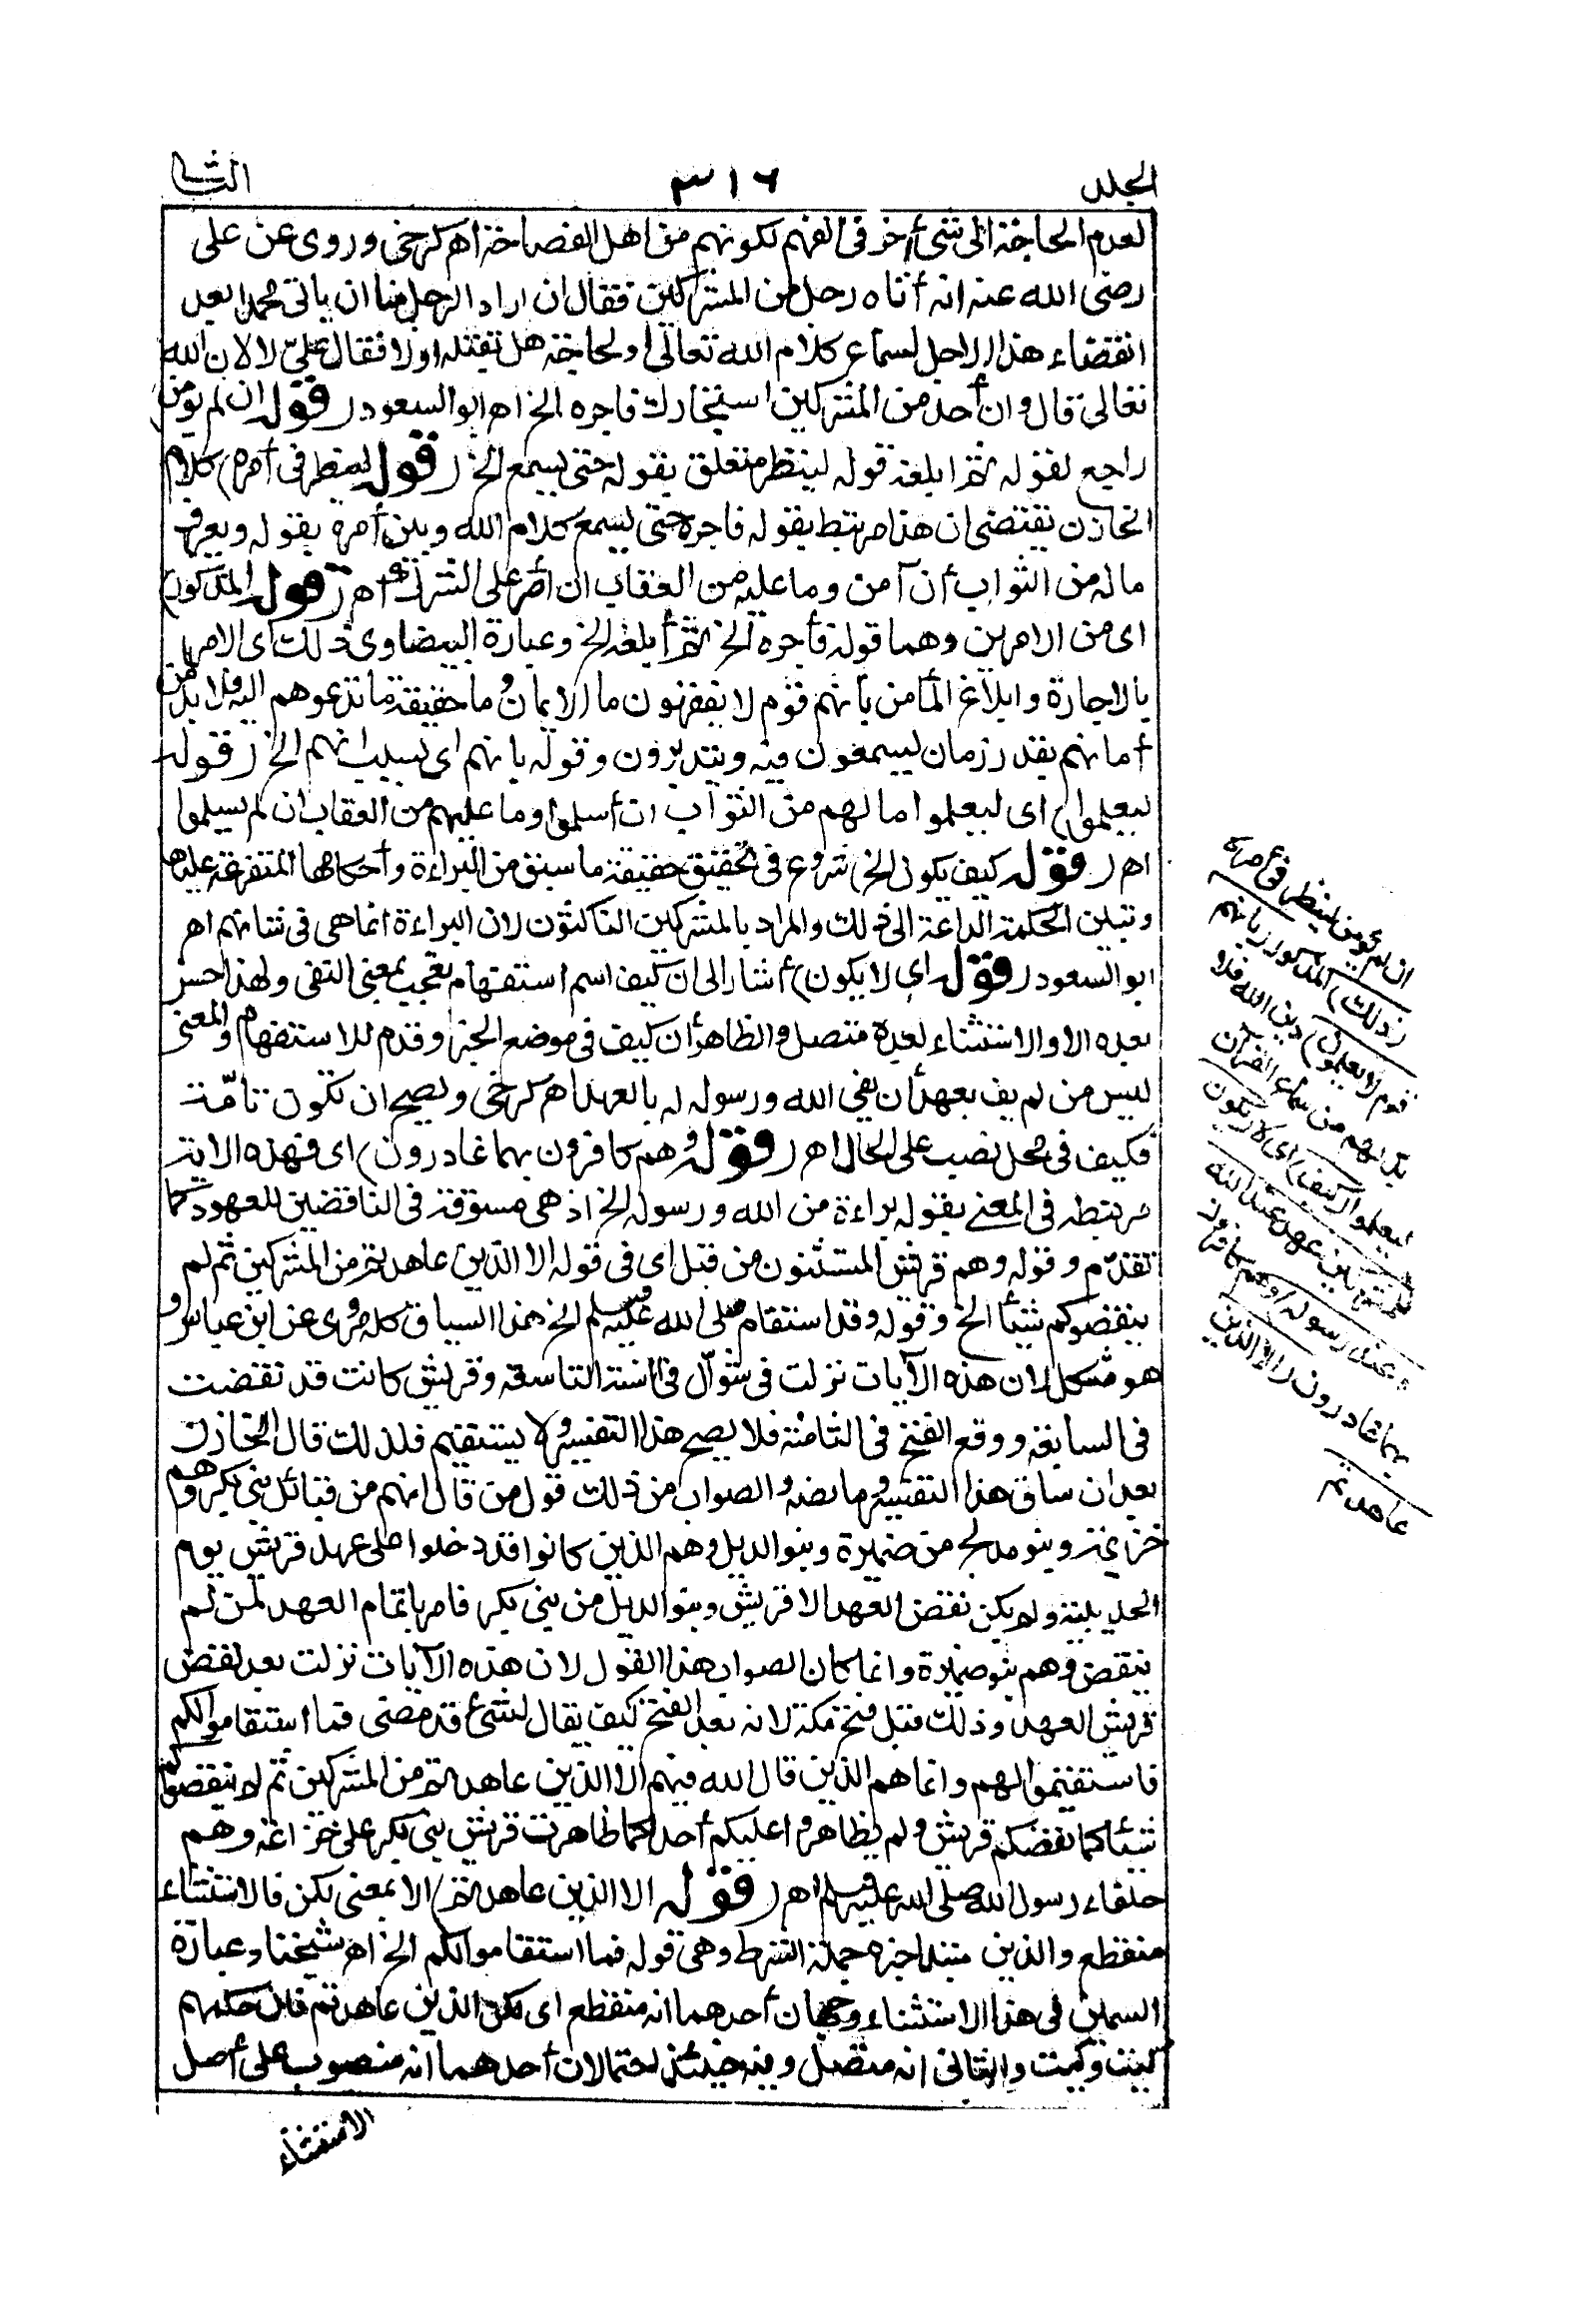 الجلد ٣١٦ الثانى
لعدم الحاجة الى شئ أخر فى الفهم لكونهم من اهل الفصاحة اه كرخى وروى عن على
رضى الله عنه انه أتاه رجل من المشركين فقال ان اراد الرجل منا ان ياتى محمدا بعد
انقضاء هذا الاجل لسماع كلام الله تعالى او لحاجة هل يقتل او لا فقال علىّ لا لان الله
تعالى قال وان أحد من المشركين استجارك فاجره الخ اه ابو السعود (قوله ان لم يؤمن)
راجع لقوله ثم ابلغه قوله لينظر متعلق بقوله حتى يسمع الخ (قوله لينظر فى أمره) كلام
الخازن يقتضى ان هذا مرتبط بقوله فاجره حتى يسمع كلام الله وبين أمره بقوله ويعرف
ماله من الثواب أن آمن وما عليه من العقاب ان أصر على الشرك اه (قوله المذكور)
اى من الامرين وهما قوله فأجره الخ ثم أبلغه الخ وعبارة البيضاوى ذلك اى الامر
بالاجارة وابلاغ المأمن بأنهم قوم لا يفقهون ما الايمان وما حقيقة ما تدعوهم اليه فلا بد من
أمانهم بقدر زمان يسمعون فيه ويتدبرون وقوله بانهم اى بسبب انهم الخ (قوله
ليعلموا) اى ليعلموا ما لهم من الثواب ان أسلموا وما عليهم من العقاب ان لم يسلموا
اه (قوله كيف يكون الخ) شروع فى تحقيق حقيقة ما سبق من البراءة وأحكامها المتفرعة عليها
وتبين الحكمة الداعة الى ذلك والمراد بالمشركين الناكثون لان البراءة انما هى فى شانهم اه
ابو السعود (قوله اى لا يكون) أشار الى ان كيف اسم استفهام تعجب بمعنى النفى ولهذا حسن
بعده الا والاستثناء بعده متصل والظاهر أن كيف فى موضع الخبر وقدم للاستفهام والمعنى
ليس من لم يف بعهد أن يفى الله ورسوله له بالعهد اه كرخى ويصح ان تكون تامّة
فكيف فى محل نصب على الحال اه (قوله وهم كافرون بهما غادرون) اى فهذه الاية
مرتبطه فى المعنى بقوله براءة من الله ورسوله الخ اذ هى مسوقة فى الناقضين للعهود كما
تقدّم وقوله وهم قريش المستثنون من قبل اى فى قوله الا الذين عاهدتم من المشركين ثم لم
ينقضوكم شيأ الخ وقوله وقد استقام صلى الله عليه وسلم الخ هذا السياق كله مروى عن ابن عباس و
هو مشكل لان هذه الآيات نزلت فى شوّال فى السنة التاسعة وقريش كانت قد نقضت
فى السابعة ووقع الفتح فى الثامنة فلا يصح هذا التفسير ولا يستقيم فلذلك قال الخازن
بعد ان ساق هذا التفسير ما نصه والصواب من ذلك قول من قال انهم من قبائل بنى بكر وهم
خزاعة وبنو مدلج من ضميرة وبنو الديل وهم الذين كانوا قد دخلوا على عهد قريش يوم
الحديبية ولم يكن نقض العهد الا قريش وبنو الديل من بنى بكر فامر باتمام العهد لمن لم
ينقض وهم بنو ضميرة وانما كان الصواب هذا القول لان هذه الآيات نزلت بعد نقض
قريش العهد وذلك قبل فتح مكة لانه بعد الفتح كيف يقال لشئ قد مضى فما استقاموا لكم
فاستقيموا لهم وانما هم الذين قال الله فيهم الا الذين عاهدتم من المشركين ثم لم ينقضوكم
شيئا كما نقضكم قريش ولم يظاهروا عليكم أحدا كما ظاهرت قريش بنى بكر على خزاعة وهم
حلفاء رسول الله صلى الله عليه وسلم اه (قوله الا الذين عاهدتم) الا بمعنى لكن فالاستثناء
منقطع والذين مبتدا خبره جملة الشرط وهى قوله فما استقاموا لكم الخ اه شيخنا وعبارة
السمين فى هذا الاستثناء وجهان أحدهما انه منقطع اى لكن الذين عاهدتم فان حكمهم
كيت وكيت والثانى انه متصل وفيه حينئذ احتمالان أحدهما انه منصوب على أصل
الاستثناء
ان لم يؤمن لينظر فى أمره
(ذلك) المذكور (بانهم
قوم لا يعلمون) دين الله فلا
بد لهم من سماع القرآن
ليعلموا (كيف) اى لا يكون
للمشركين عهد عند الله
وعند رسوله) وهم كافرون
بهما غادرون (الا الذين
عاهدتم